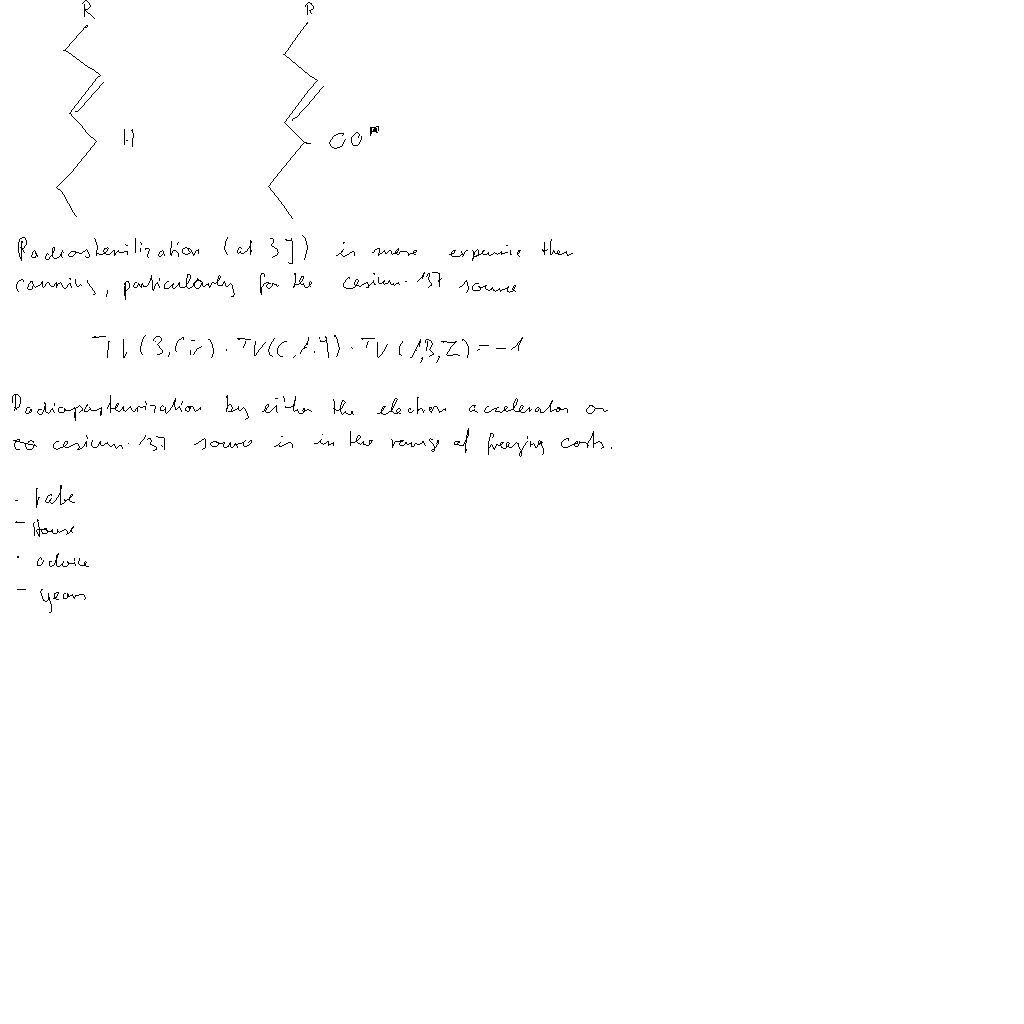 R R
H
Radiosterilization (at 3]) is more expensie then
canning, particularly for the cesium-137 source
TV(B,C,X) · TV(C,A,Y) · TV(A,B,Z) = -1
Radiopasteurization by either the electron accelerator or
cesium-137 source is in the range of freezing costs.
- House
- advice
- years